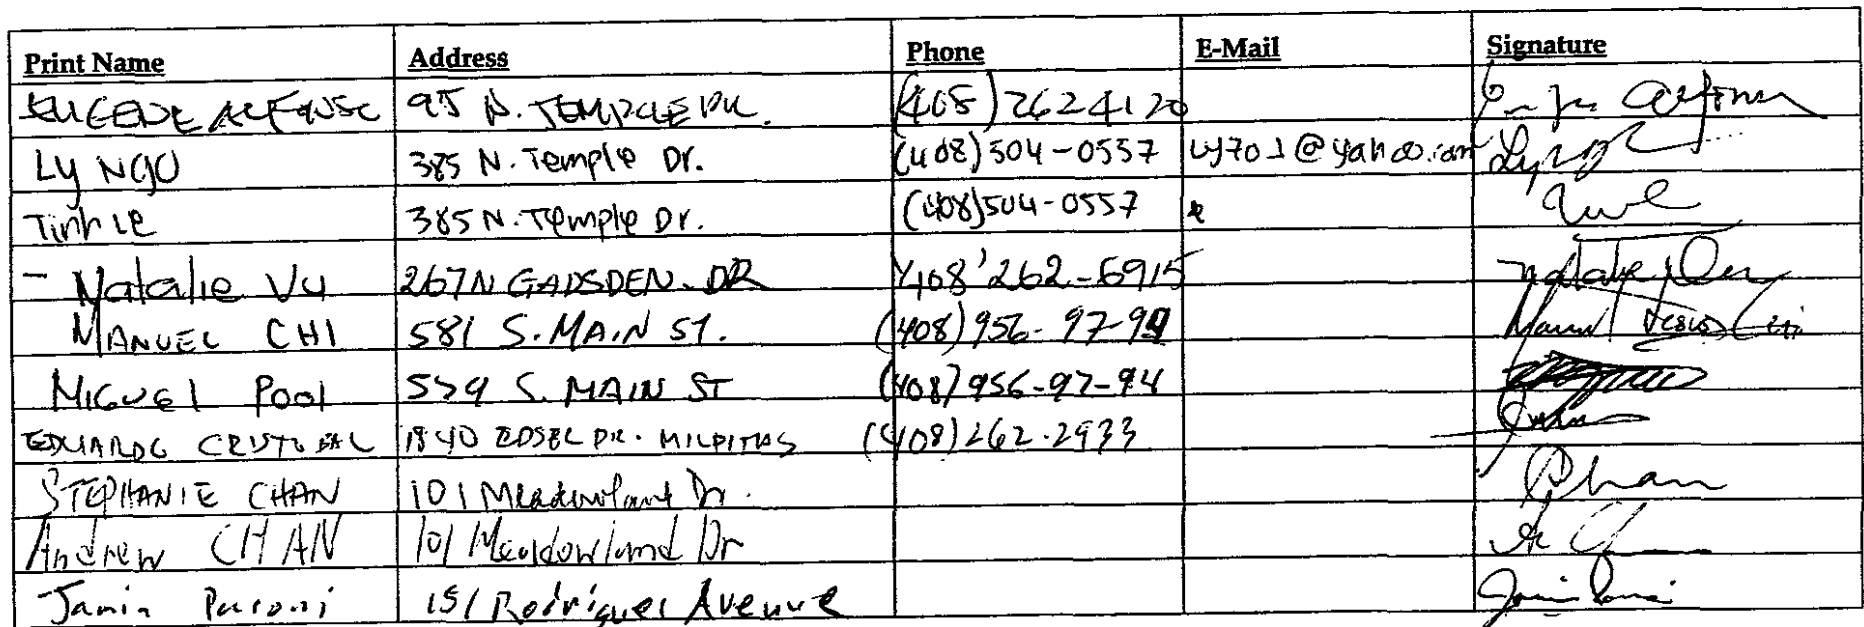 Print Name Address Phone E-Mail Signature
EUGENE ALFONSO 95 N. TEMPLE DR. (408) 262 4120
Ly NGO 385 N. Temple Dr. (408) 504-0557 Ly701@yahoo.com
Tinh Le 385 N. Temple Dr. (408) 504-0557
- Natalie Vu 267 N GADSDEN. DR 408' 262-6915
MANUEL CHI 581 S. MAIN ST. (408) 956-97-94
MIGUEL Pool 579 S. MAIN ST (408) 956-97-94
EDUARDO CRISTOBAL 1840 EDSEL DR. MILPITAS (408) 262-2933
STEPHANIE CHAN 101 Meadowland Dr. Chan
Andrew CHAN 101 Meadowland Dr
151 Rodrigues Avenue